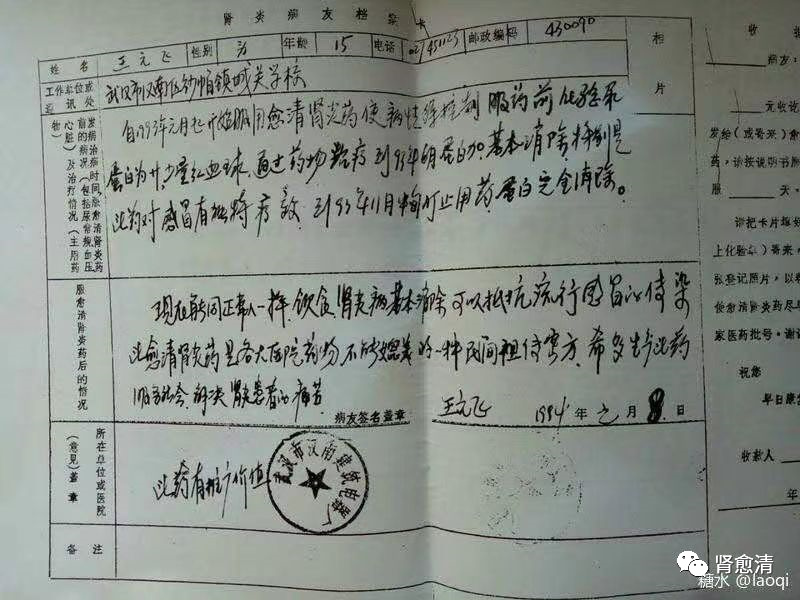 肾炎病友档案卡
姓名 王元飞 性别 男 年龄 15 电话 027451123 邮政编码 430090
相片
工作单位或通讯处 武汉市汉南区纱帽镇城关学校
发病治疗时间、服愈清肾炎药前的病况（包括尿常规、血压、心脏）及治疗情况（主用药物）
自1993年元月起开始服用愈清肾炎药使病情得控制 服药前化验尿
蛋白为廿 少量红血球，通过药物治疗 到93年 蛋白 基本消除，特别是
此药对感冒有独特疗效。到93年11月 停止用药，蛋白完全消除。
服愈清肾炎药后的情况
现在能同正常人一样，饮食，肾炎病基本消除 可以抵抗流行感冒的传染
此愈清肾炎药是各大医院药物，不能 的一种民间祖传 方，希多生产此药
服务社会，解决肾炎患者的痛苦
病友签名盖章 王元飞 1994年 元月8日
所在单位或医院（意见）盖章
此药有推广价值
武汉市汉南建筑电器厂
备注
收据
病友：
元收说
发给（或寄来）
药，请按说明书服
服 天，
请把卡片填好
上化验单）寄来，
张登记照片，以
使愈清肾炎药尽
家医药批号。谢
祝您
早日康
收款人
年
肾愈清
糖水 @laoqi